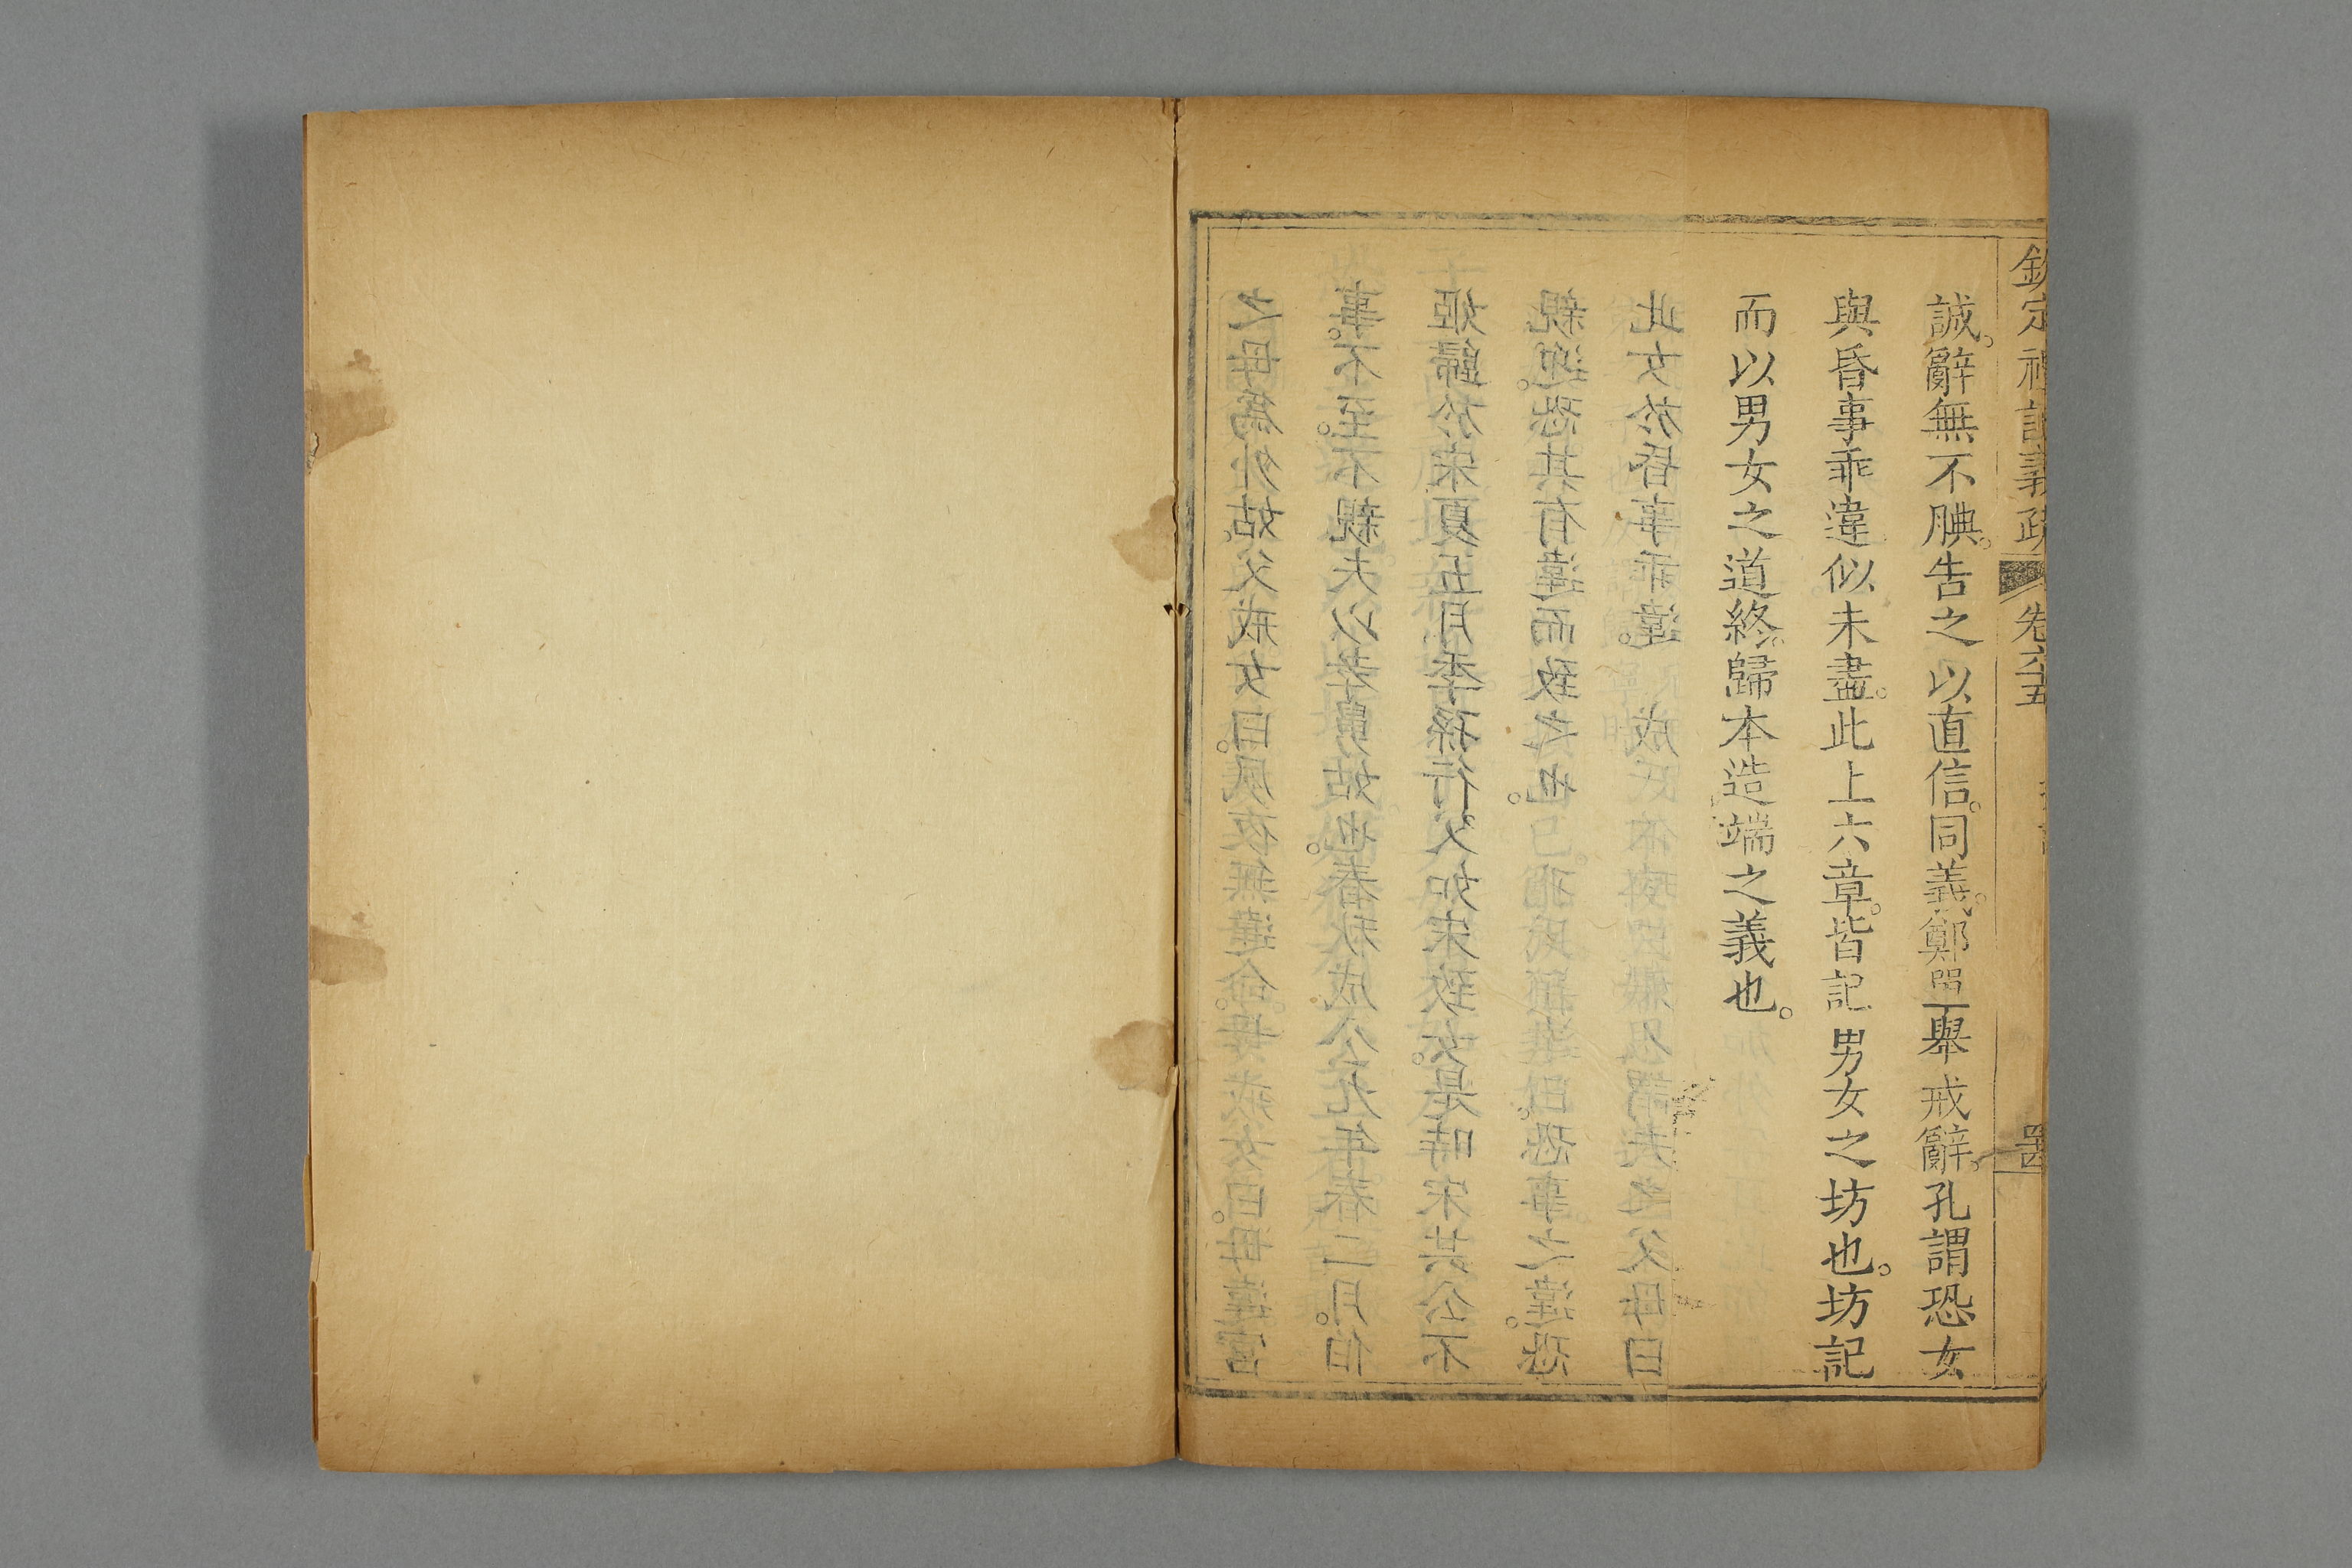 欽定禮記義疏 卷六十五
誠。辭無不腆。告之以直信。同義。鄭單舉戒辭。孔謂恐女
與昏事乖違似未盡。此上六章。皆記男女之坊也。坊記
而以男女之道終。歸本造端之義也。
之母為外姑。父戒女曰。夙夜無違命。母戒女曰。毋違宮
事。不至。不親夫以孝舅姑也。春秋成公九年春二月。伯
姬歸於宋夏五月季孫行父如宋致女。是時宋共公不
親迎。恐其有違而致之也。孔氏穎達曰。恐事之違。恐
此女於昏事乖違。成氏謂夫之父母曰